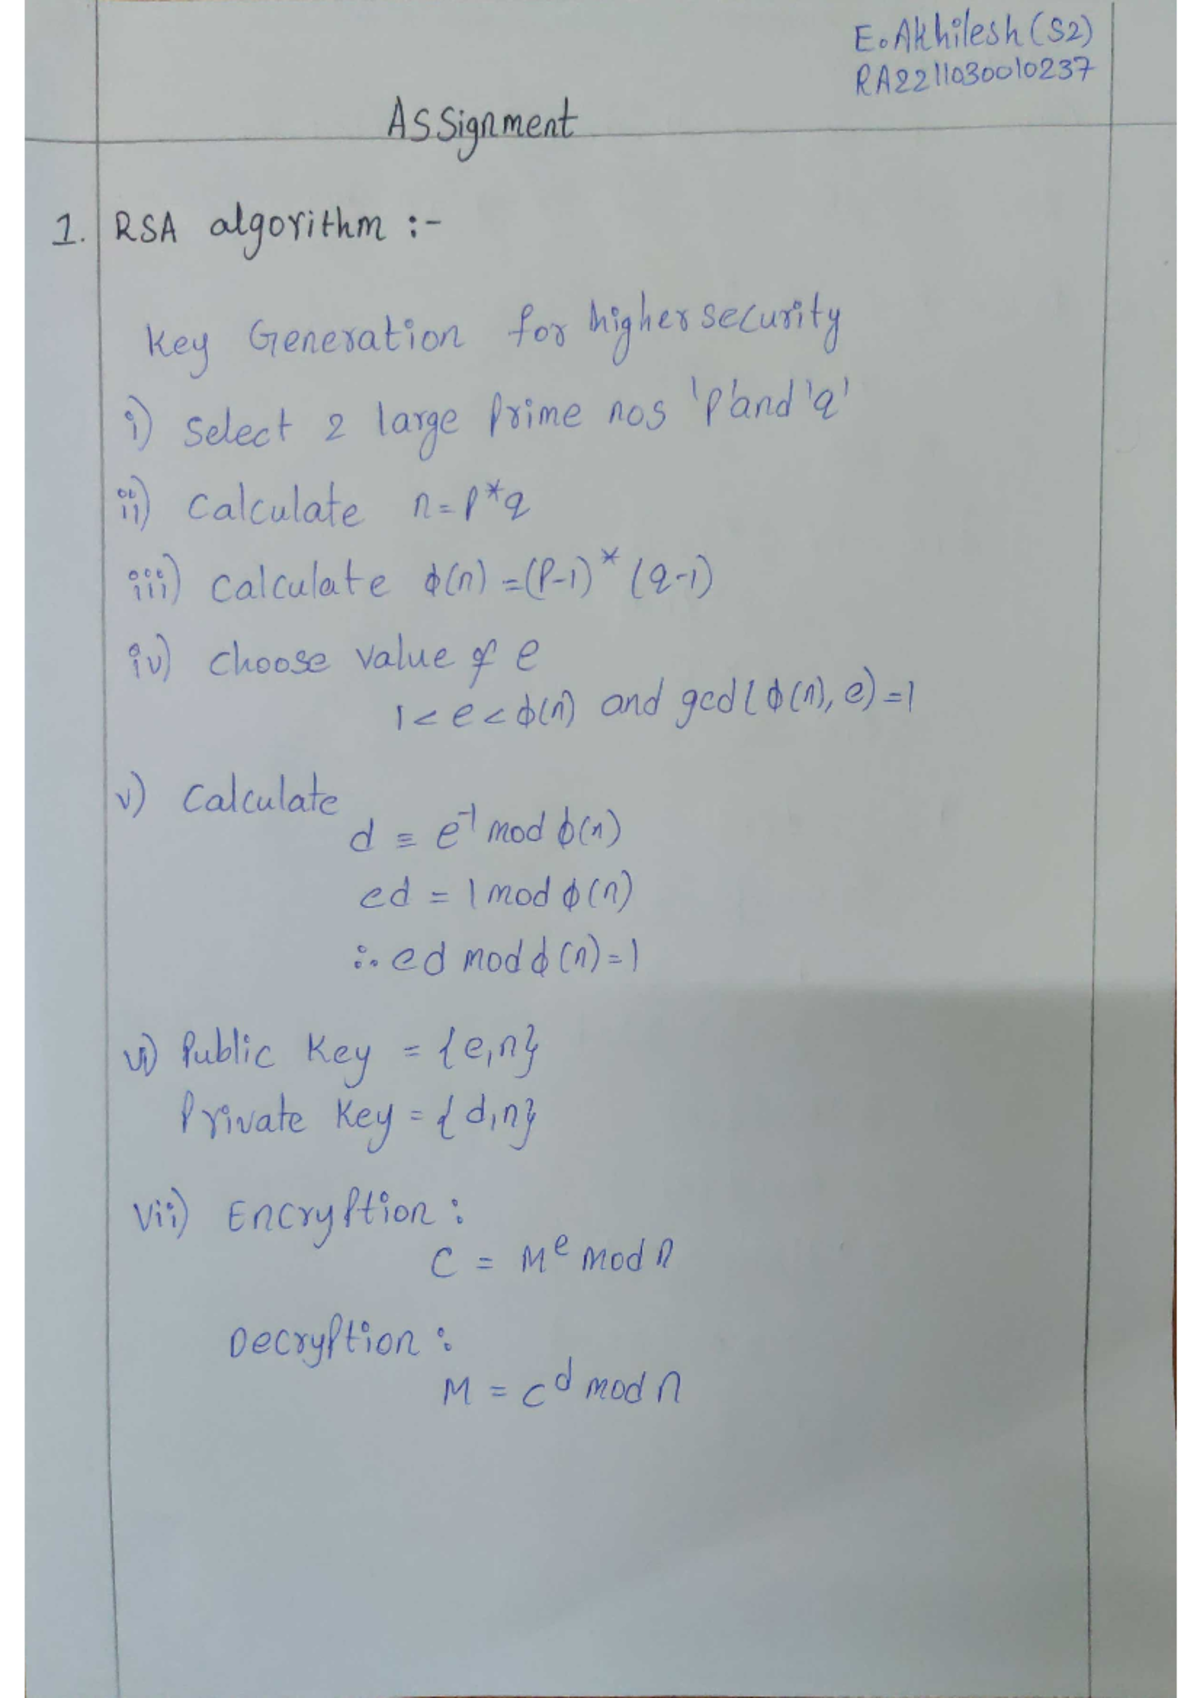 E. Akhilesh (S2)
RA2211030010237
Assignment
1. RSA algorithm :-
Key Generation for higher security
i) Select 2 large Prime nos 'p' and 'q'
ii) Calculate n = p * q
iii) Calculate ϕ(n) = (P-1) * (q-1)
iv) choose value of e
1 < e < ϕ(n) and gcd(ϕ(n), e) = 1
v) Calculate
d ≡ e⁻¹ mod ϕ(n)
ed = 1 mod ϕ(n)
∴ ed mod ϕ(n) = 1
vi) Public Key = {e, n}
Private Key = {d, n}
vii) Encryption :
C = Mᵉ mod n
Decryption :
M = Cᵈ mod n